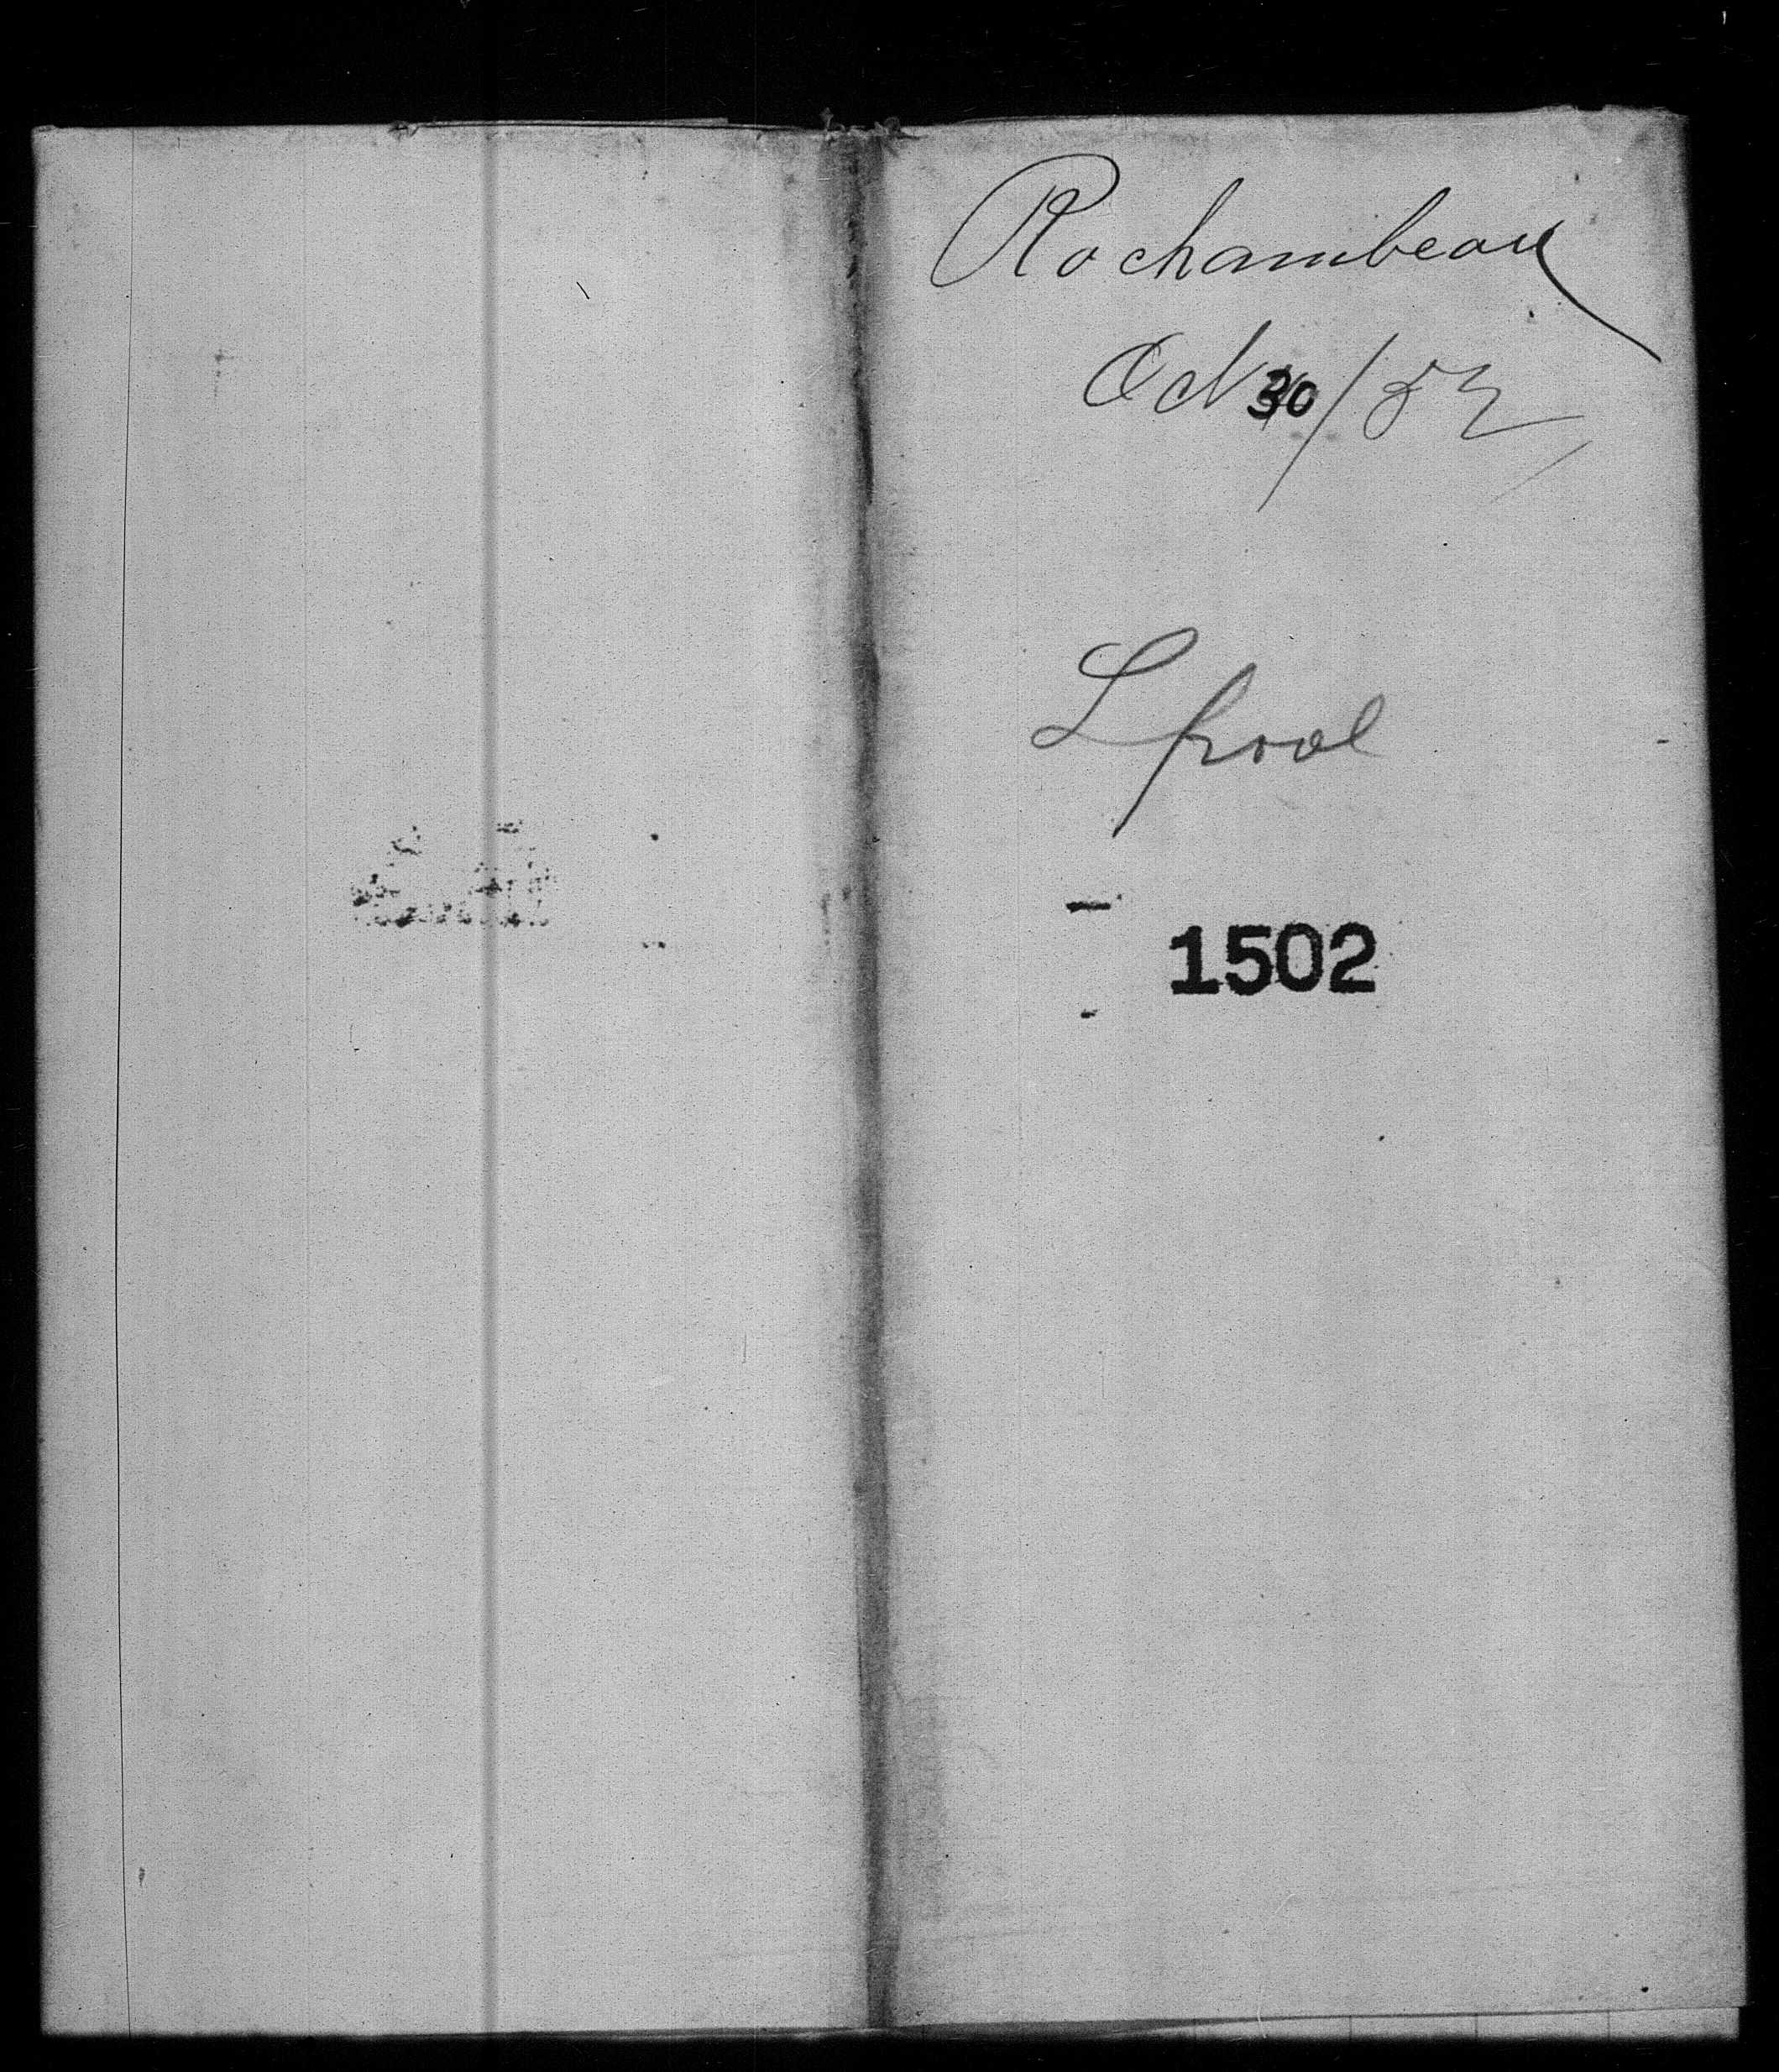 Rochambeau
Oct 30/52
L pool
1502